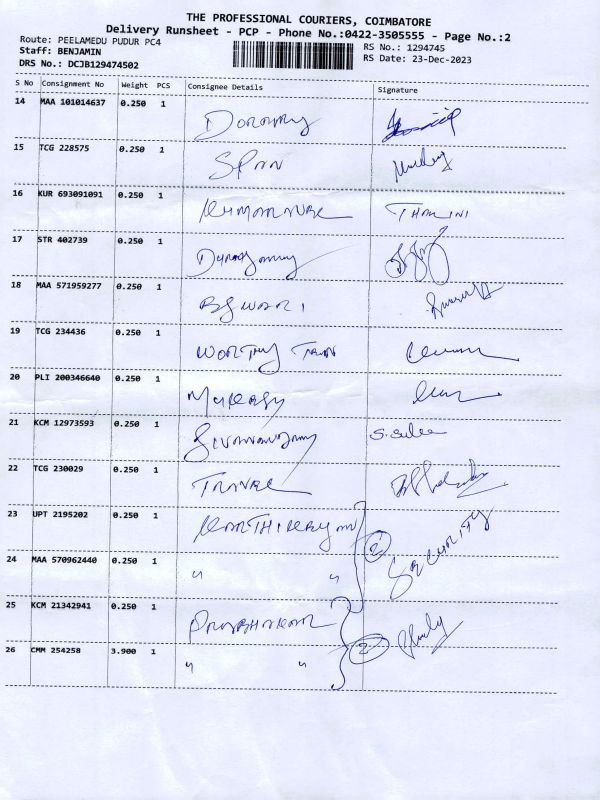 THE PROFESSIONAL COURIERS, COIMBATORE
Delivery Runsheet - PCP - Phone No.:0422-3505555 - Page No.:2
Route: PEELAMEDU PUDUR PC4
RS No.: 1294745
Staff: BENJAMIN
RS Date: 23-Dec-2023
DRS No.: DCJB129474502
S No Consignment No Weight PCS Consignee Details Signature
14 MAA 101014637 0.250 1
15 TCG 228575 0.250 1
16 KUR 693091091 0.250 1 THARINI
17 STR 402739 0.250 1
18 MAA 571959277 0.250 1
19 TCG 234436 0.250 1 WORTHY
20 PLI 200346640 0.250 1
21 KCM 12973593 0.250 1
22 TCG 230029 0.250 1 TRAVEL
23 UPT 2195202 0.250 1 KARTHIKEYAN
2 SECURITY
24 MAA 570962440 0.250 1 " "
25 KCM 21342941 0.250 1 PRABHAKAR
2
26 CMM 254258 3.900 1 " "